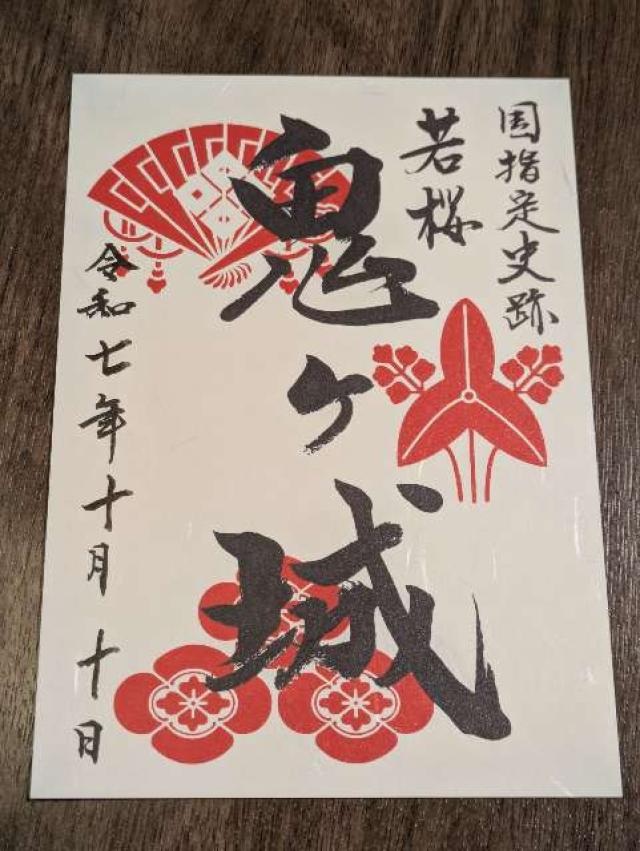 国指定史跡
若桜
鬼ヶ城
令和七年十月十日